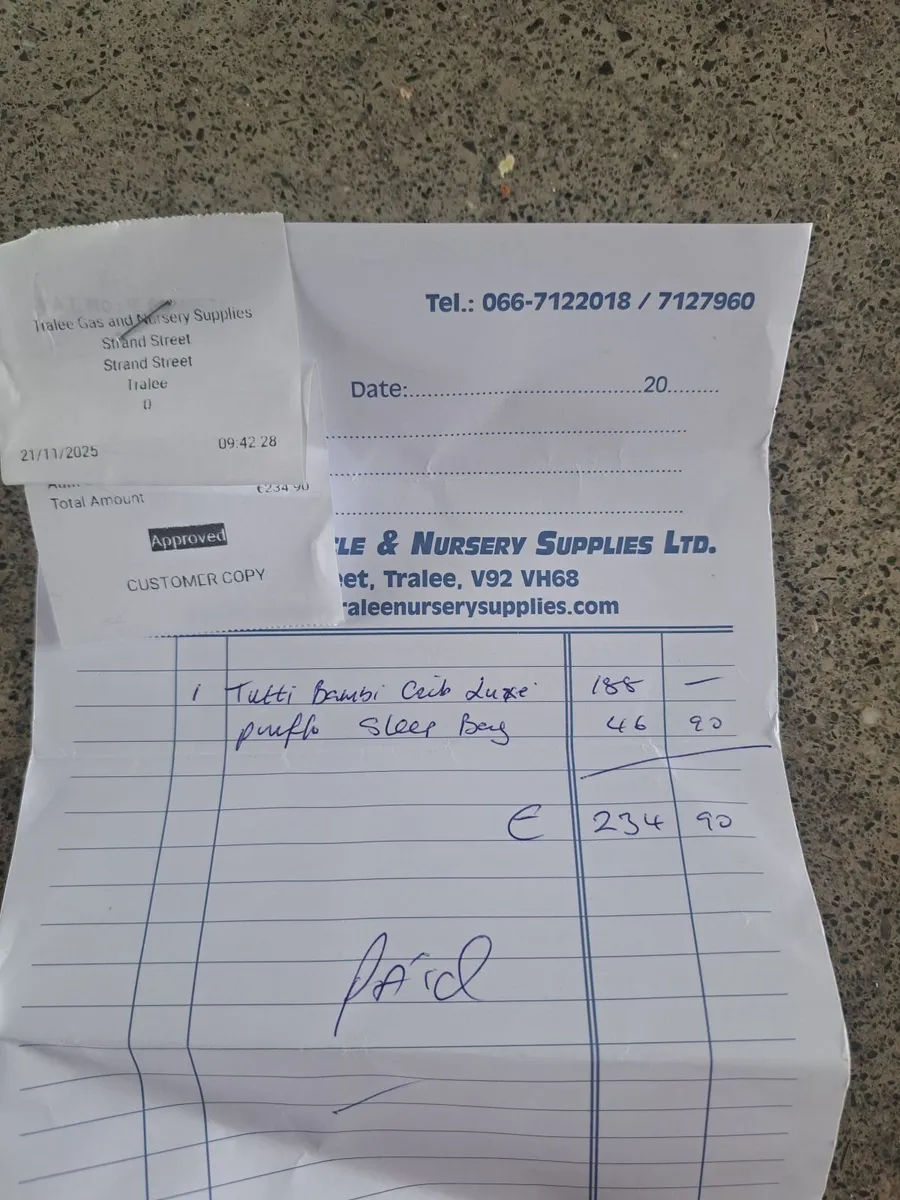 Tralee Gas and Nursery Supplies
Strand Street
Strand Street
Tralee
0
21/11/2025 09:42:28
€234.90
Total Amount
Approved
CUSTOMER COPY
Tel.: 066-7122018 / 7127960
Date:..............................20.........
LE & NURSERY SUPPLIES LTD.
eet, Tralee, V92 VH68
raleenurserysupplies.com
1 Tutti Bambi Crib Luxe 188 —
Sleep Bag 46 90
€ 234 90
Paid